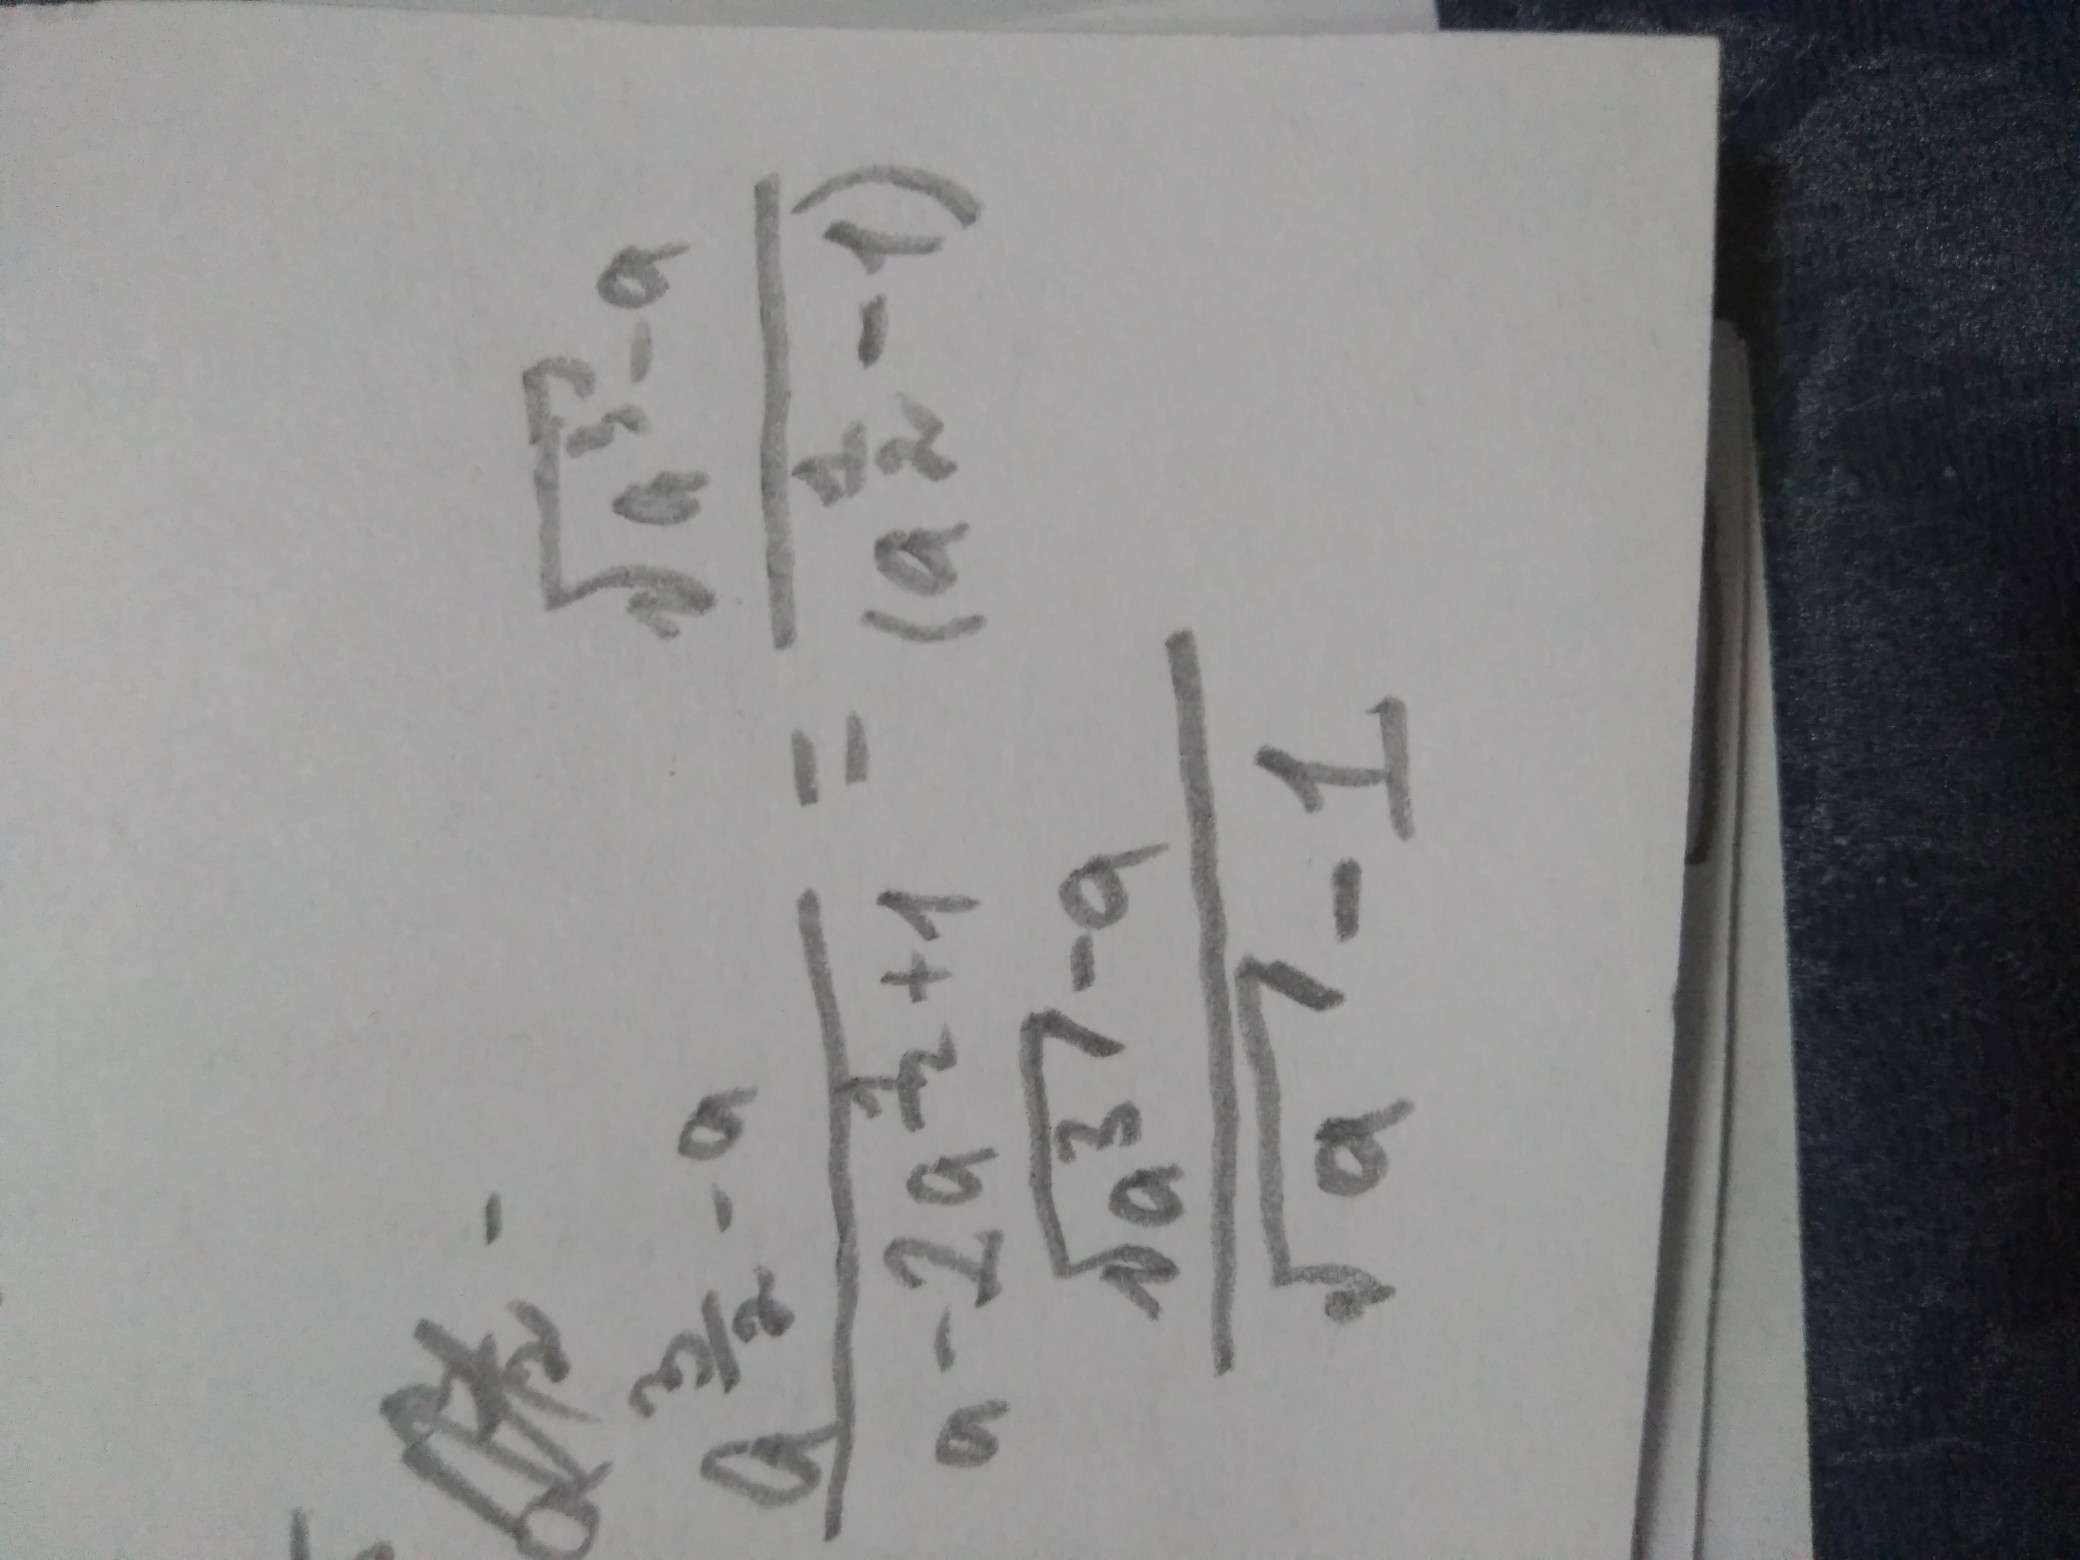 a^{3/2} - a / a - 2a^{1/2} + 1 = √a³ - a / (a^{1/2} - 1)
√a³ - a / √a - 1